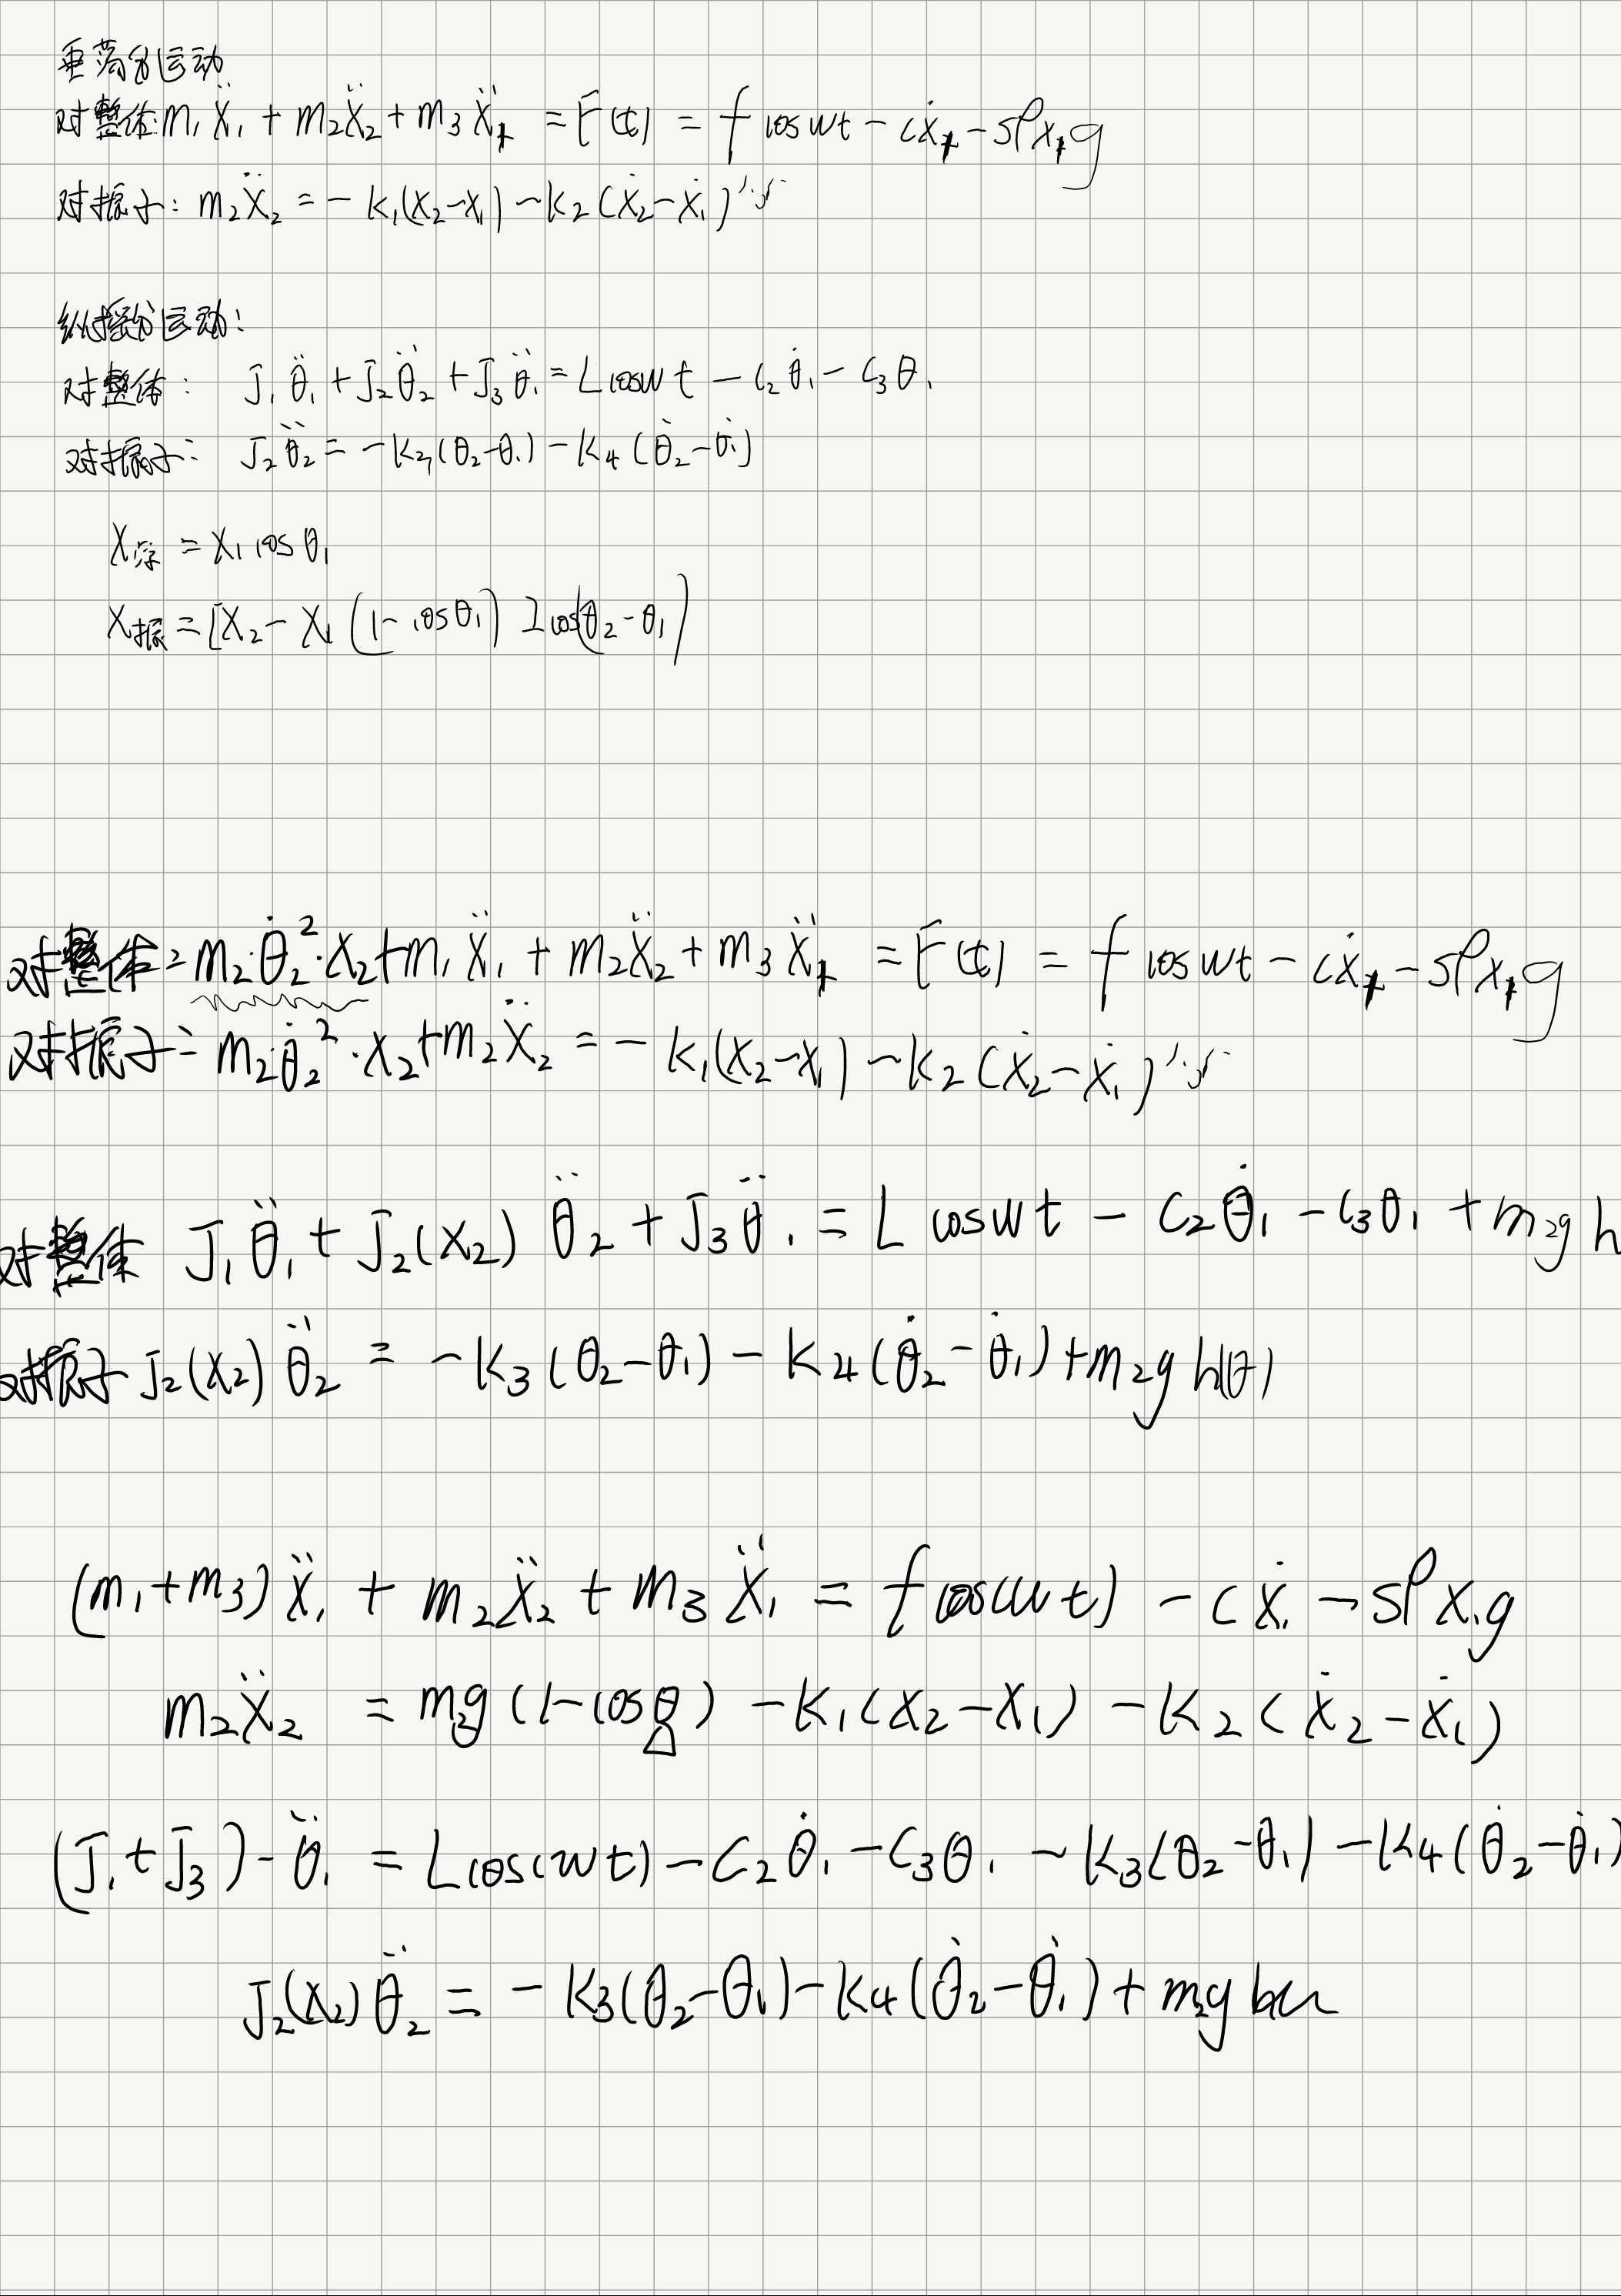 垂荡分运动
对整体:m₁ẍ₁ + m₂ẍ₂ + m₃ẍ₁ = F(t) = f cos wt - cẋ₁ - sρx₁g
对振子: m₂ẍ₂ = - k₁(x₂-x₁) - k₂(ẋ₂-ẋ₁)
纵摇分运动:
对整体: J₁θ̈₁ + J₂θ̈₂ + J₃θ̈₁ = L cos w t - C₂θ̇₁ - C₃θ₁
对振子: J₂θ̈₂ = - k₃(θ₂-θ₁) - k₄(θ̇₂-θ̇₁)
X浮 = X₁ cos θ₁
X振 = [X₂ - X₁(1-cosθ₁)] cos(θ₂-θ₁)
对整体: m₂·θ̇₂²·x₂+m₁ẍ₁ + m₂ẍ₂ + m₃ẍ₁ = F(t) = f cos wt - cẋ₁ - sρx₁g
对振子: m₂θ̇₂²·x₂+m₂ẍ₂ = - k₁(x₂-x₁) - k₂(ẋ₂-ẋ₁)
对整体 J₁θ̈₁ + J₂(x₂)θ̈₂ + J₃θ̈₁ = L cos w t - C₂θ̇₁ - C₃θ₁ + m₂g h
对振子 J₂(x₂)θ̈₂ = - k₃(θ₂-θ₁) - k₄(θ̇₂-θ̇₁)+m₂g h(θ)
(m₁+m₃)ẍ₁ + m₂ẍ₂ + m₃ẍ₁ = f cos(wt) - cẋ₁ - sρx₁g
m₂ẍ₂ = m₂g(1-cosθ) - k₁(x₂-x₁) - k₂(ẋ₂-ẋ₁)
(J₁+J₃)-θ̈₁ = L cos(wt) - C₂θ̇₁ - C₃θ₁ - k₃(θ₂-θ₁) - k₄(θ̇₂-θ̇₁)
J₂(x₂)θ̈₂ = - k₃(θ₂-θ₁) - k₄(θ̇₂-θ̇₁) + m₂g